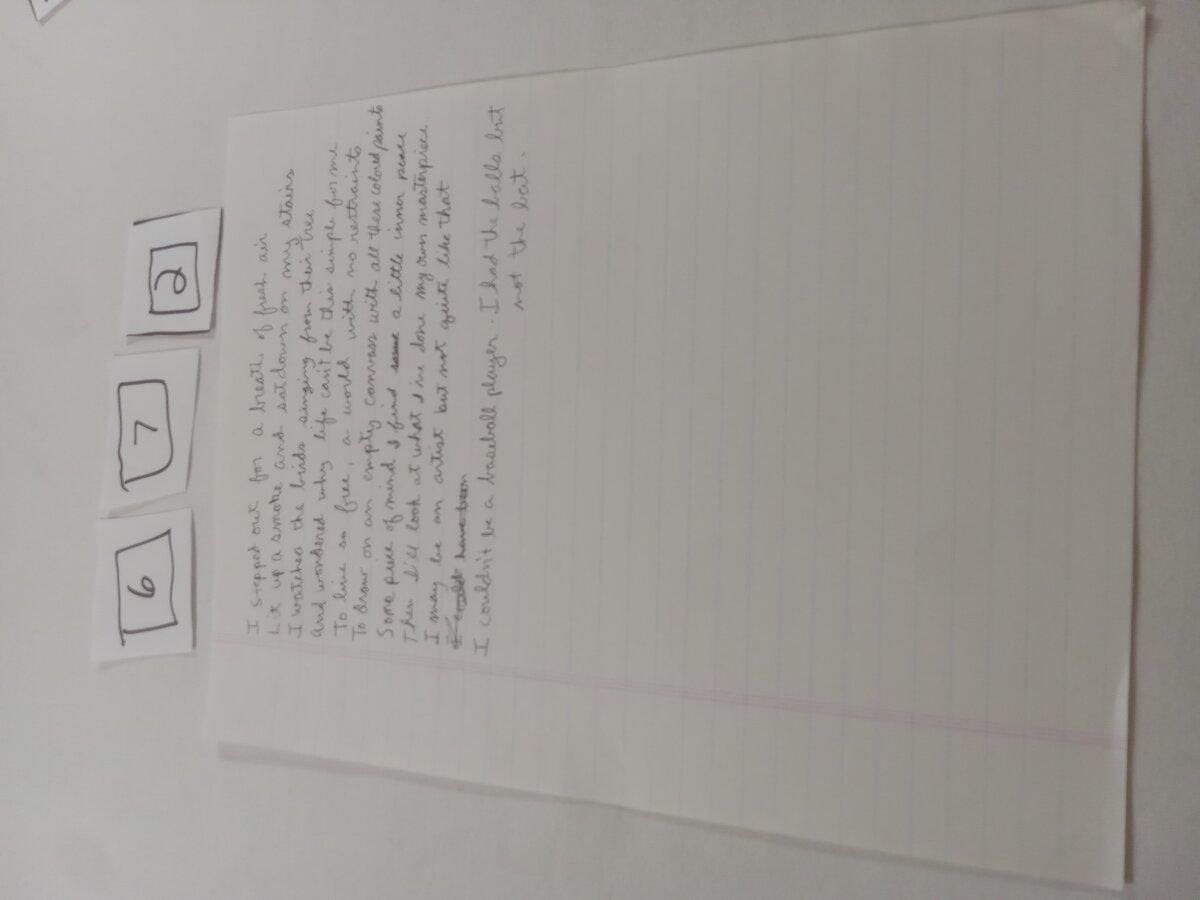 6 7 2
I stepped out for a breath of fresh air
Lit up a smoke and sat down on my stairs
I watched the birds singing from their tree
and wondered why life can't be this simple for me
To live so free, a world with no restraints
To draw on an empty canvass with all these colored paints
Some piece of mind I find some a little inner peace
Then I'll look at what I've done my own masterpiece.
I may be an artist but not quite like that
I could have been
I couldn't be a baseball player. I had the balls but
not the bat.